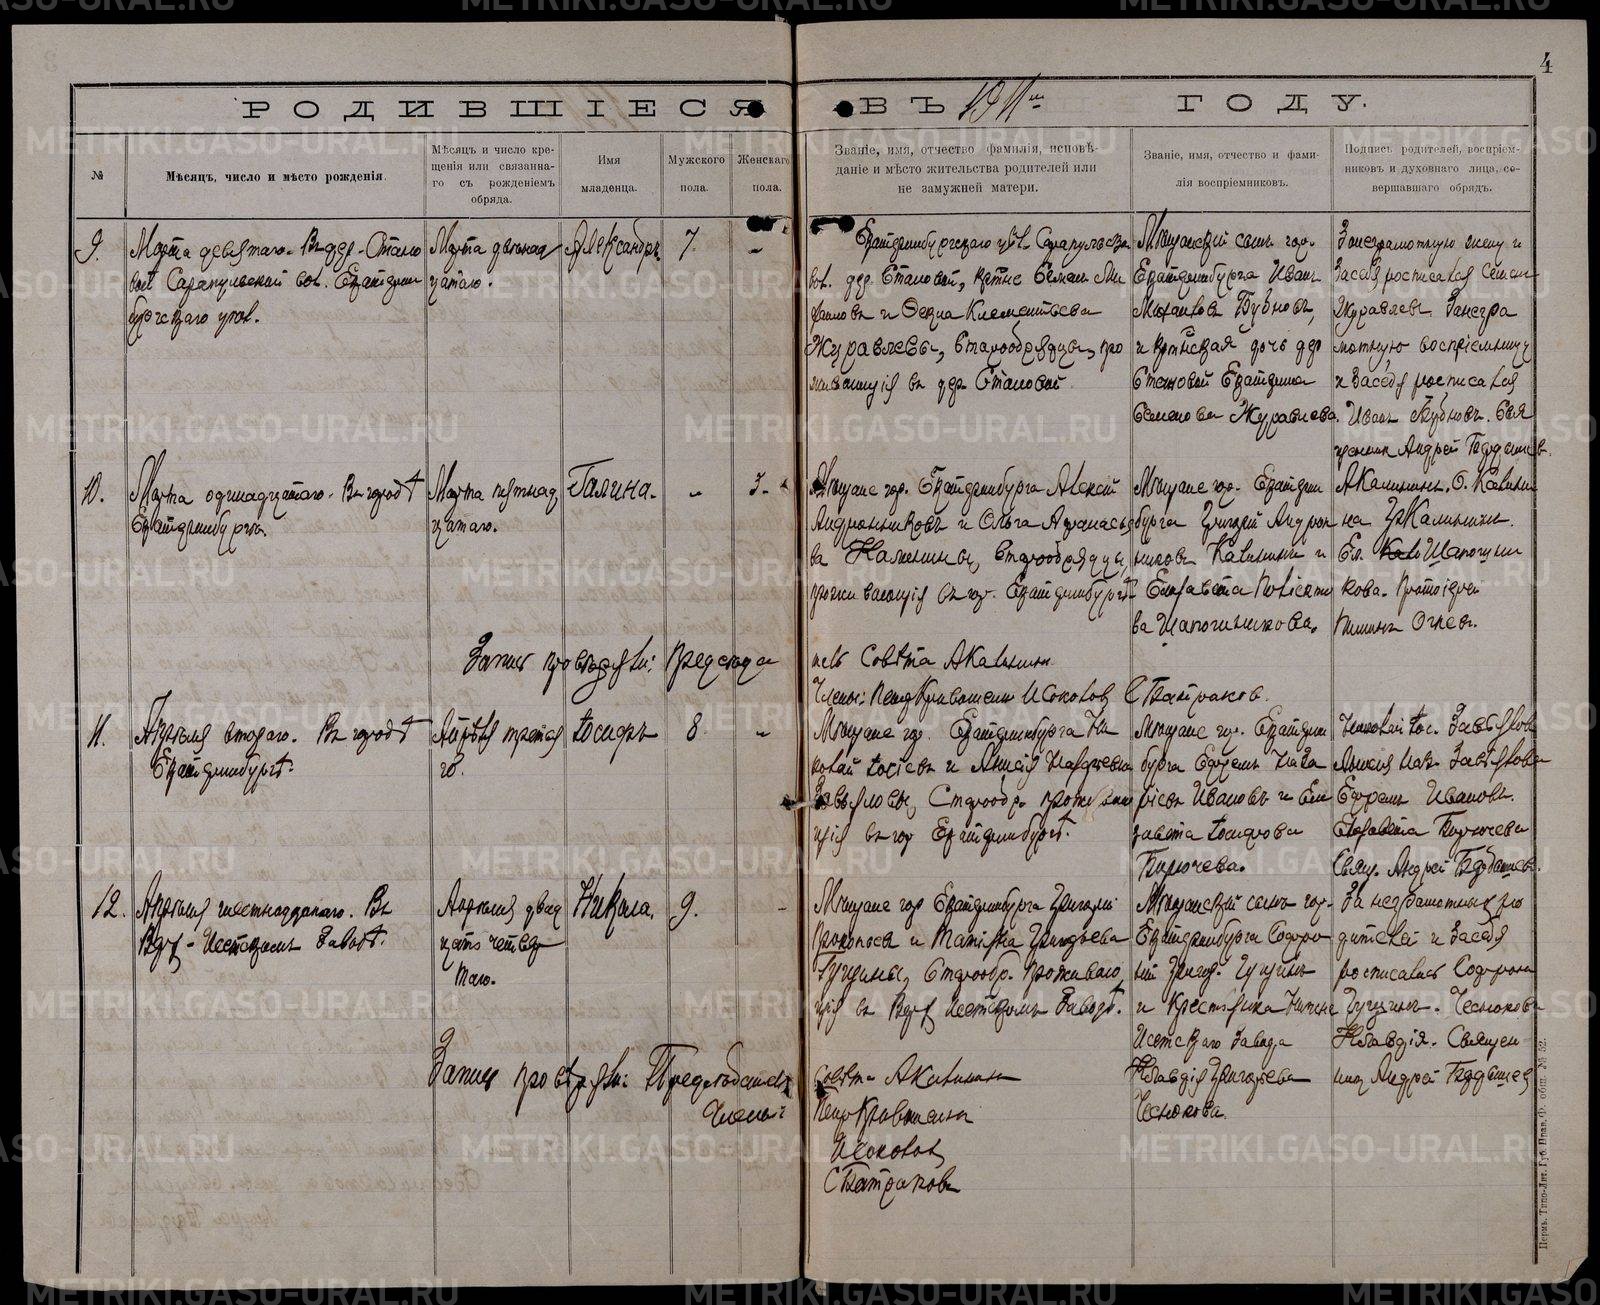 4
РОДИВШІЕСЯ ВЪ 1911 ГОДУ.
№
Мѣсяцъ, число и мѣсто рожденія.
Мѣсяцъ и число кре-
щенія или связанна-
го съ рожденіемъ
обряда.
Имя
младенца.
Мужского
пола.
Женскаго
пола.
Званіе, имя, отчество фамилія, исповѣ-
даніе и мѣсто жительства родителей или
не замужней матери.
Званіе, имя, отчество и фами-
лія воспріемниковъ.
Подпись родителей, воспріем-
никовъ и духовного лица, со-
вершавшаго обрядъ.
9.
Марта девятаго. Въ дер. Стано
вой Сарапульской вол. Екатерин
бургскаго уѣз.
Марта двѣнад
цатаго.
Александръ
7.
"
Екатеринбургскаго уѣз. Сарапульской
вол. дер. Становой, крѣсне Семенъ
и Клементьева
Журавлевы, старообрядцы, про
живающія въ дер. Становой
Мѣщанскій сынъ гор.
Екатеринбурга Иванъ
Бубновъ,
и дочь дер
Становой Екатерина
Семенова Журавлева.
За неграмотную жену и
за себя росписался Семенъ
Журавлевъ. За негра
мотную воспріемницу
и за себя росписался
Иванъ Бубновъ. Свя
щенникъ Андрей
10.
Марта одинадцатаго. Въ городѣ
Екатеринбургѣ.
Марта пятнад
цатаго.
Галина.
"
3.
Мѣщане гор. Екатеринбурга Алексѣй
Андрониковъ и Ольга Афанасье
ва Калинины, старообрядцы,
проживающія въ гор. Екатеринбургѣ
Мѣщане гор. Екатерин
бурга Григорій Андрон
иковъ Калининъ и
Елизавета
ва Шапошникова.
А Калининъ. О. Калини
на Гр Калининъ.
Ел. Шапошни
кова. Протоіерей
Огневъ.
Запись провѣряли: Предсѣда
тель Совѣта А Калининъ
Члены: Петръ Кривошеинъ И Соколовъ С Батраковъ.
11.
Апрѣля втораго. Въ городѣ
Екатеринбургѣ.
Апрѣля третія
го.
Іосифъ
8.
"
Мѣщане гор. Екатеринбурга Ни
колай Іосіевъ и Анисія
Завьяловы, Старообр. прожива
щія въ гор Екатеринбургѣ.
Мѣщане гор. Екатерин
бурга Ефремъ
Ивановъ и Ели
завета Іосифова
Бирючева.
Николай Іос. Завьяловъ
Анисія Завьялова
Ефремъ Ивановъ.
Елизавета Бирючева
Свящ. Андрей
12.
Апрѣля шестнадцатаго. Въ
Верх-Исетскомъ Заводѣ.
Апрѣля двад
цать четвер
таго.
Никола.
9.
Мѣщане гор Екатеринбурга Григорій
Прокопьевъ и Татіана Григорьева
Гущины, Старообр. проживаю
щія въ Верх Исетскомъ Заводѣ.
Мѣщанскій сынъ гор.
Екатеринбурга Софро
ній Григор. Гущинъ
и
Исетскаго завода
Клавдія Григорьева
Чеснокова.
За неграмотныхъ ро
дителей и за себя
росписались Софроній
Гущинъ. Чеснокова
Клавдія. Священ
никъ Андрей
Запись провѣряли: Предсѣдатель
Совѣта А Калининъ
Члены:
Петръ Кривошеинъ
И Соколовъ
С Батраковъ
Пермь. Типо-Лит. Губ. Прав. Ф. общ. № 52.
METRIKI.GASO-URAL.RU